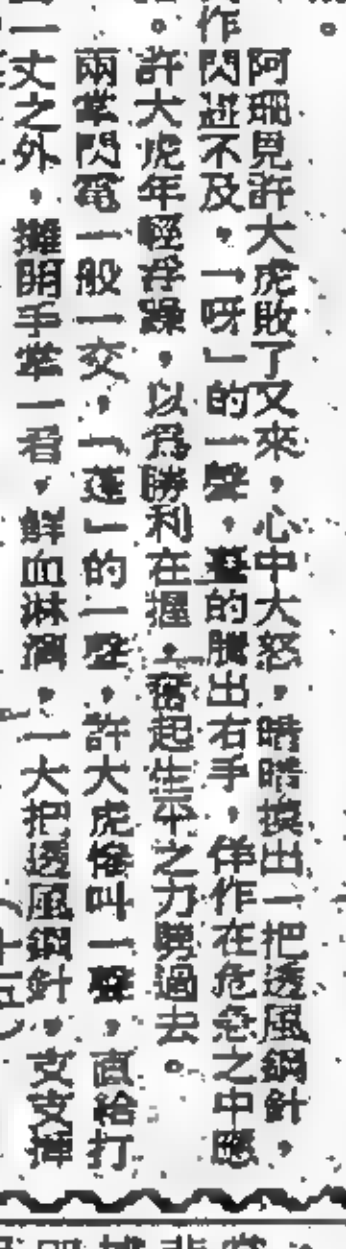 阿珊見許大虎敗了又來，心中大怒，暗暗摸出一把透風鋼針，
作閃避不及，「呀」的一聲，驀的騰出右手，佯作在危急之中應
。許大虎年輕浮躁，以爲勝利在握，奮起生平之力劈過去。
兩掌閃電一般一交，「蓬」的一聲，許大虎慘叫一聲，直給打
一丈之外，攤開手掌一看，鮮血淋漓，一大把透風鋼針，支支揷